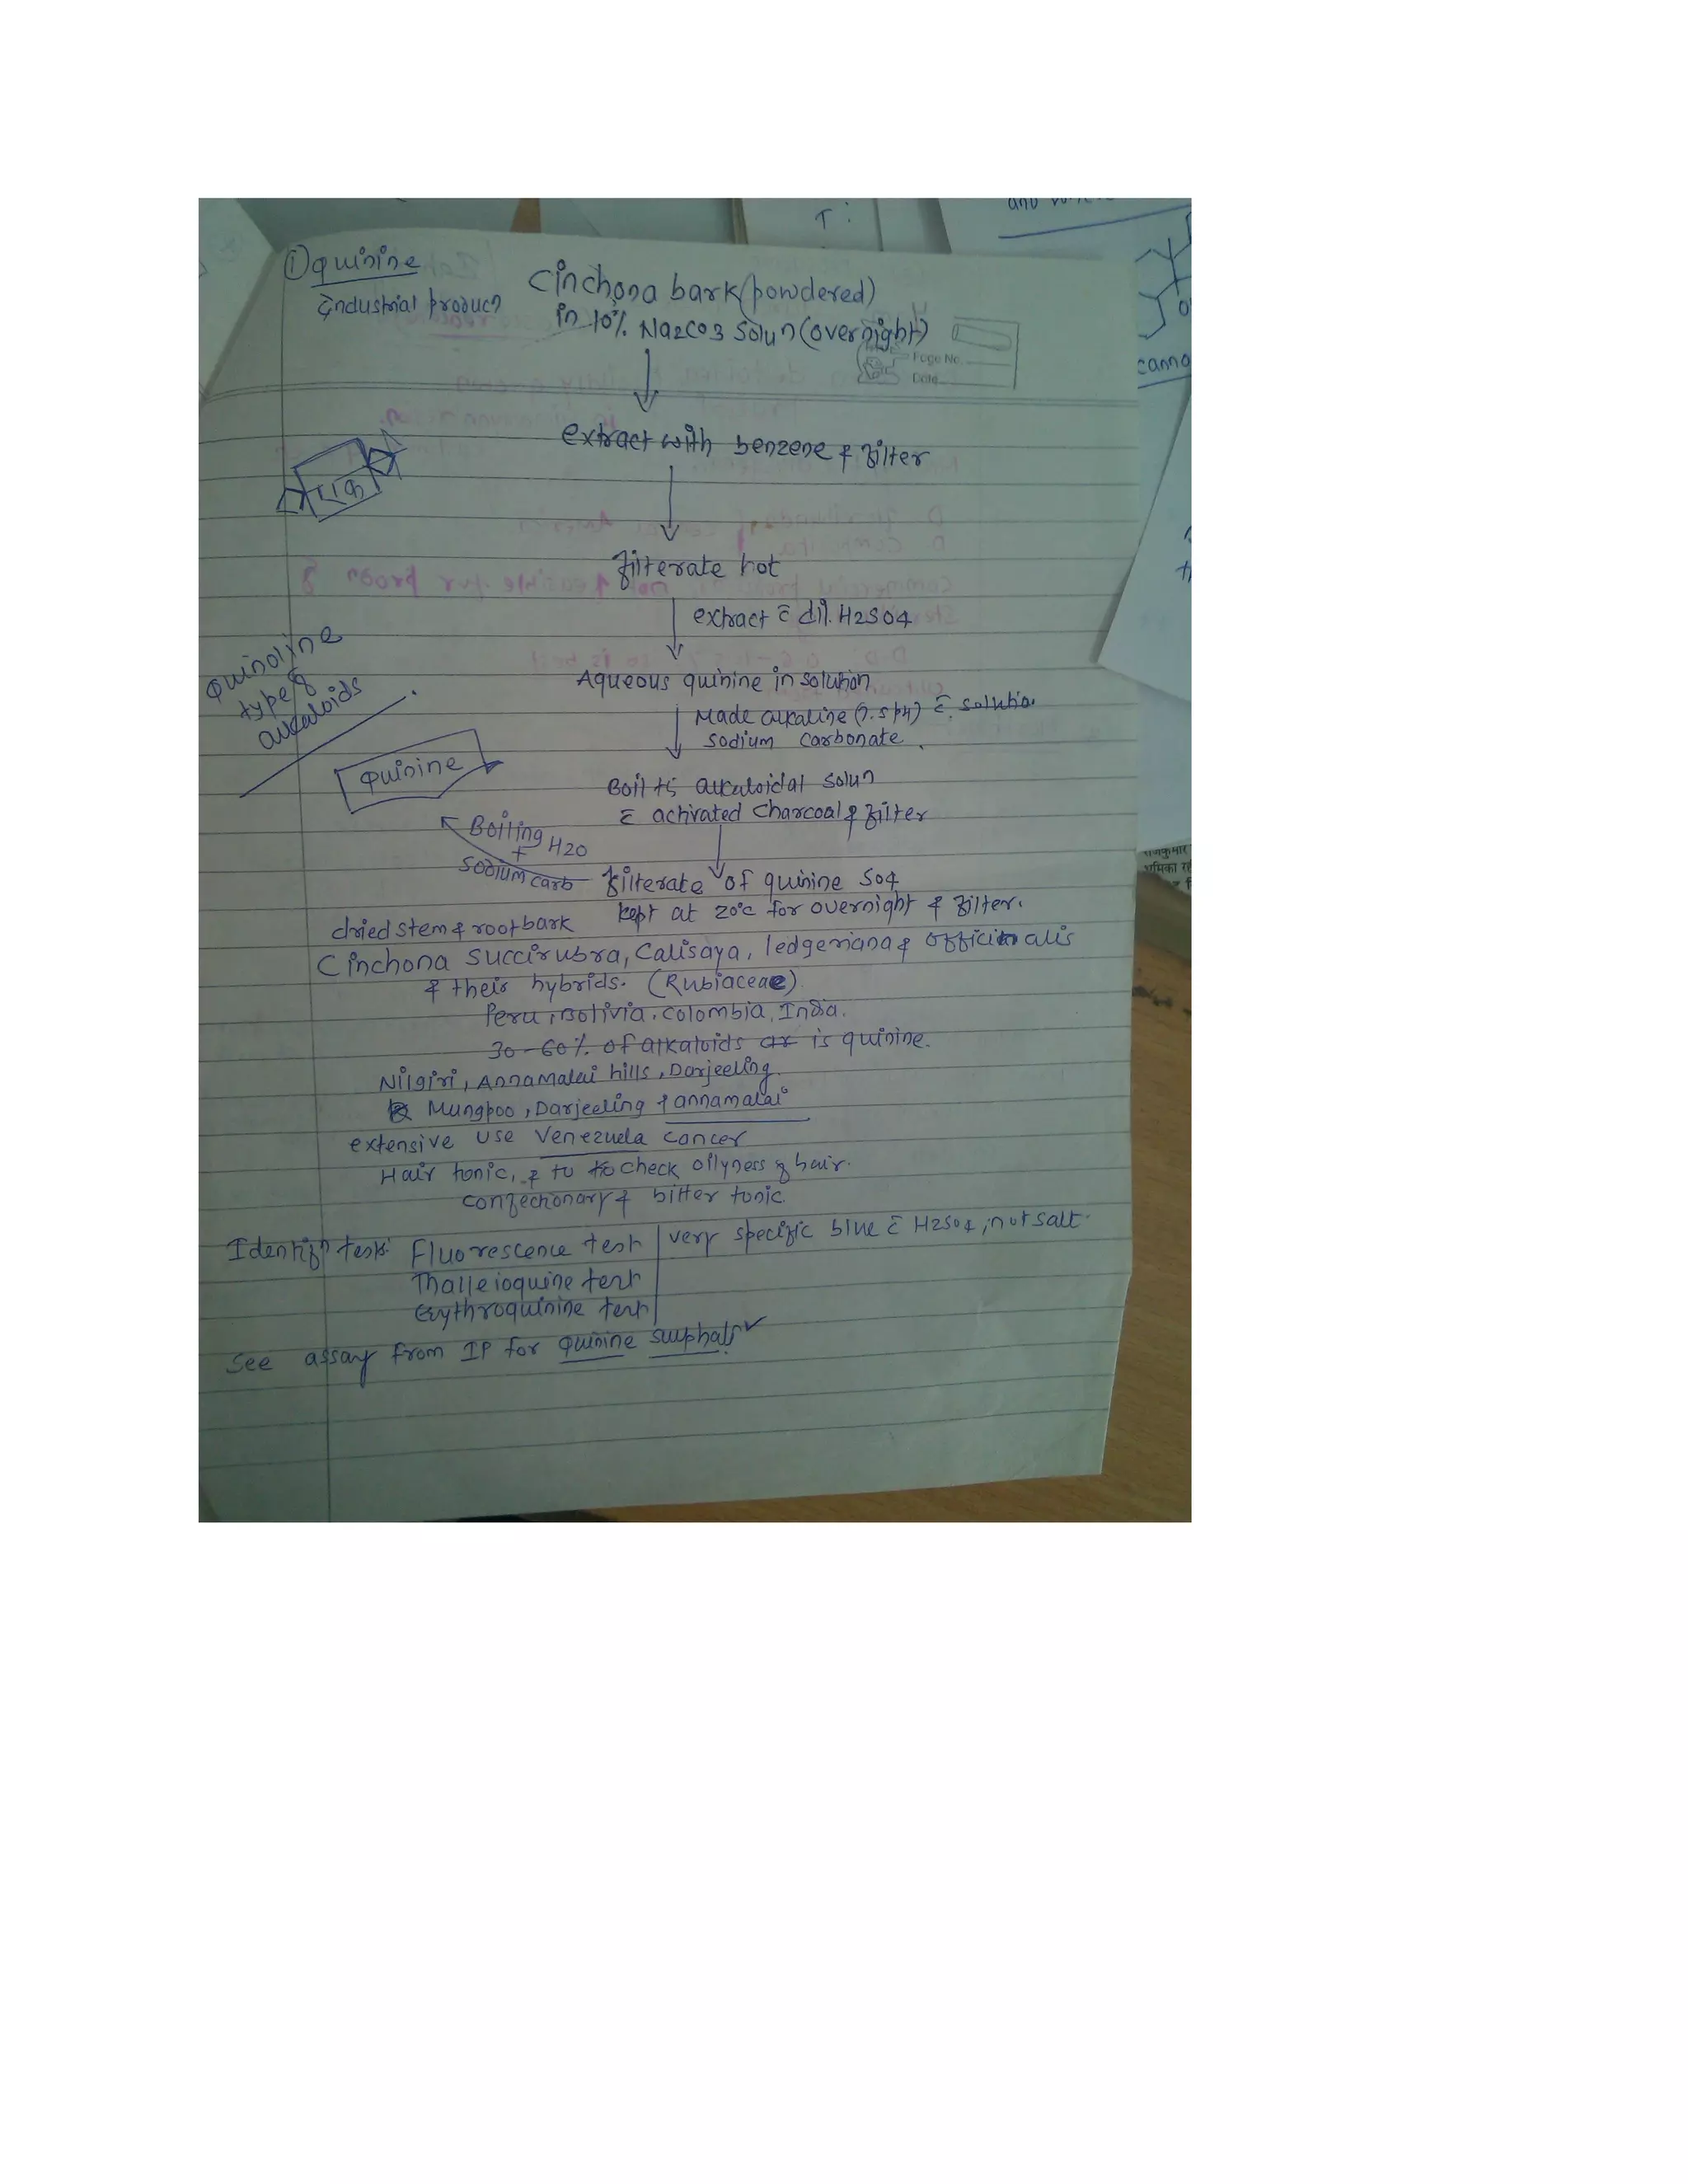 ① quinine
industrial product
Cinchona bark (powdered)
in 10% Na2CO3 solun (overnight)
Page No.
Date
extract with benzene & filter
filterate hot
extract c̄ dil. H2SO4
Aqueous quinine in solution
Made alkaline (7.5 pH) c̄ solutio.
sodium carbonate.
Quinoline
type of
alkaloids
quinine
Boil alkaloidal solun
c̄ activated charcoal & filter
Boiling
+ H2O
sodium carb
filterate of quinine SO4
kept at 20°c for overnight & filter.
dried stem & root bark
Cinchona succirubra, calisaya, ledgeriana & officinalis
& their hybrids. (Rubiaceae)
Peru, Bolivia, colombia, India.
30-60% of alkaloids is quinine.
Nilgiri, Annamalai hills, Darjeeling.
Mungpoo, Darjeeling & annamalai
extensive use Venezuela cancer
Hair tonic, & to check oilyness of hair.
confectionary & bitter tonic.
Identifn tests: Fluorescence test | very specific blue c̄ H2SO4, not salt.
Thalleioquine test
Erythroquinine test
see assay from IP for quinine sulphate ✓
T :
canno
राजकुमार